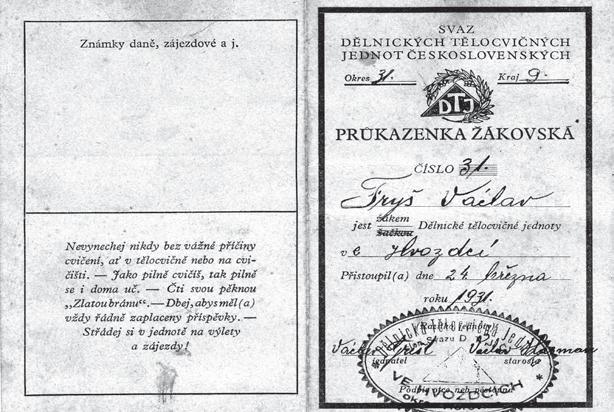 Známky daně, zájezdové a j.
Nevynechej nikdy bez vážné příčiny
cvičení, ať v tělocvičně nebo na cvi-
čišti. — Jako pilně cvičíš, tak pilně
se i doma uč. — Čti svou pěknou
„Zlatou bránu“. — Dbej, abys měl(a)
vždy řádně zaplaceny příspěvky. —
Střádej si v jednotě na výlety
a zájezdy!
SVAZ
DĚLNICKÝCH TĚLOCVIČNÝCH
JEDNOT ČESKOSLOVENSKÝCH
Okres 31. Kraj 9.
DTJ
PRŮKAZENKA ŽÁKOVSKÁ
ČÍSLO 31.
Fryš Václav
jest žákem
žačkou Dělnické tělocvičné jednoty
v e Hvozdci
Přistoupil(a) dne 24. března
roku 1931.
Razítko jednoty:
Svazu D
Václav Václav
jednatel starosta
VE HVOZDCÍCH
Podpis otce neb